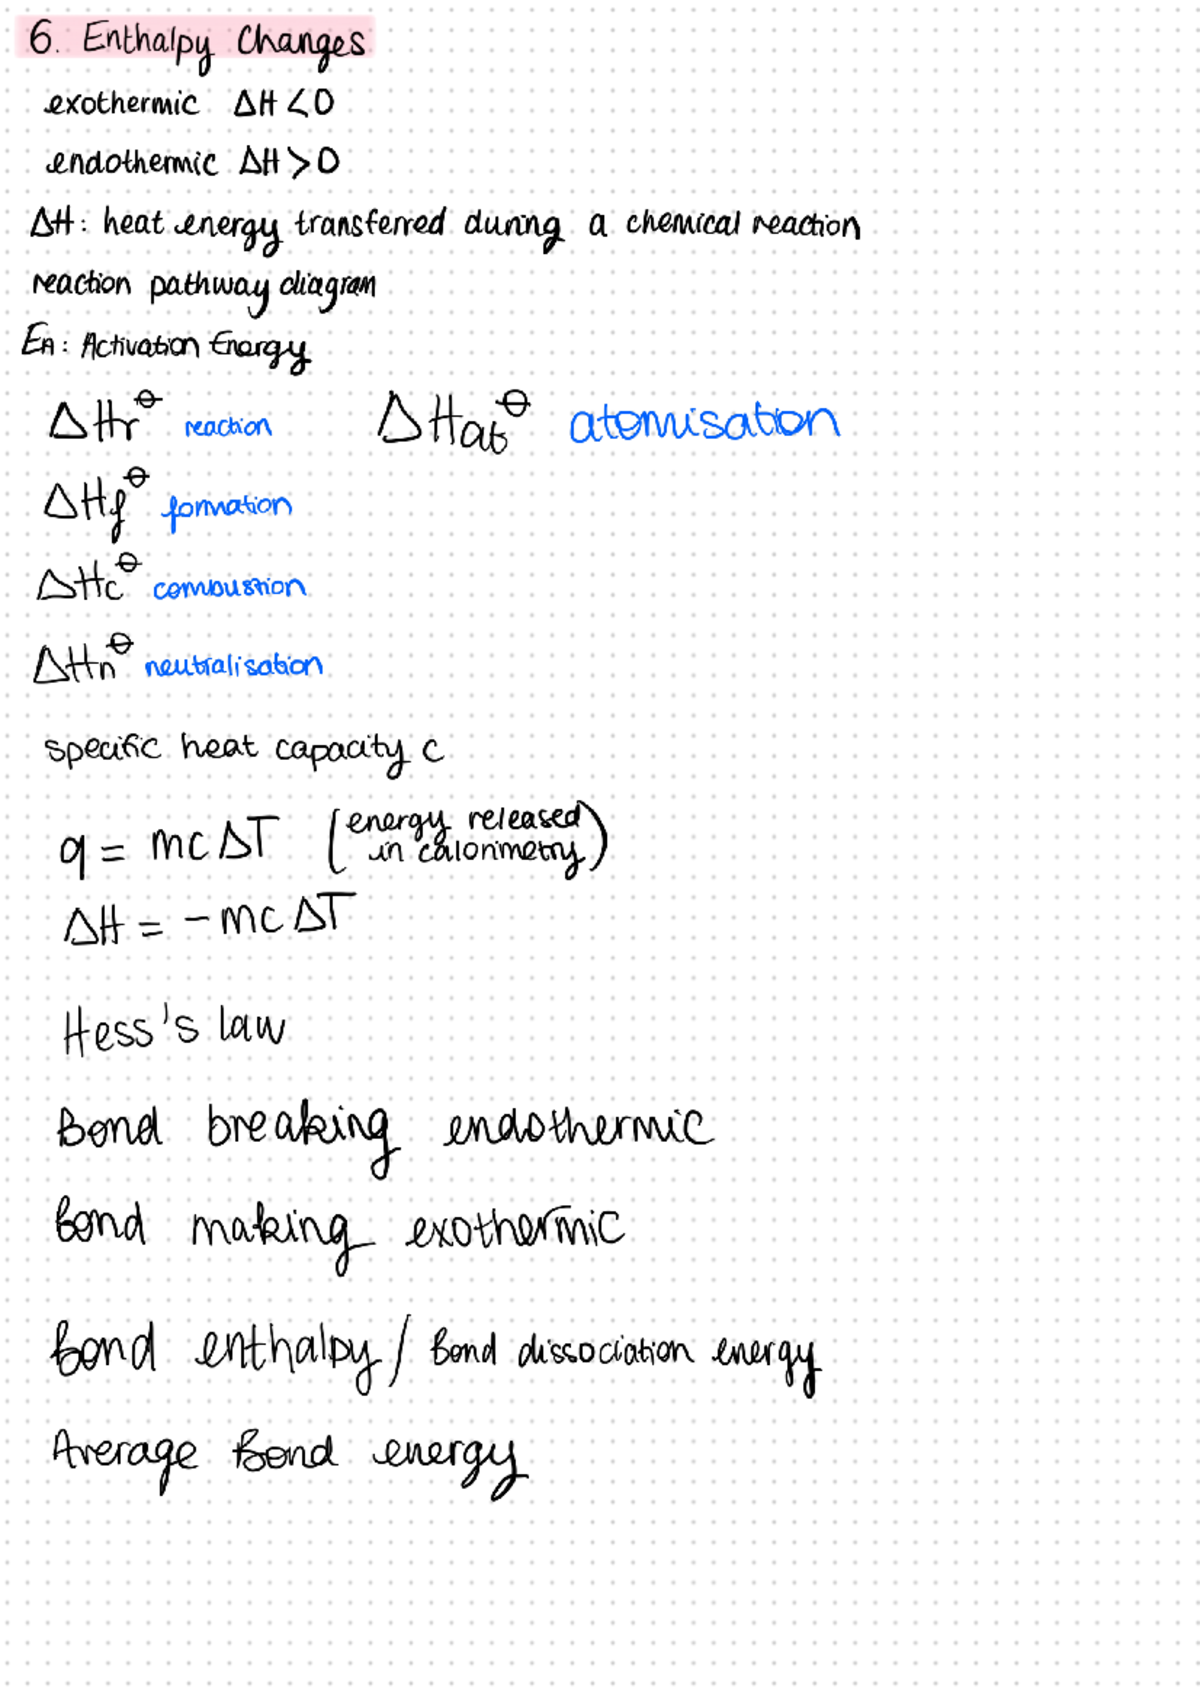 6. Enthalpy Changes
exothermic ΔH < 0
endothermic ΔH > 0
ΔH: heat energy transferred during a chemical reaction
reaction pathway diagram
EA: Activation Energy
ΔHr⦵ reaction ΔHat⦵ atomisation
ΔHf⦵ formation
ΔHc⦵ combustion
ΔHn⦵ neutralisation
specific heat capacity c
q = mcΔT (energy released
in calorimetry)
ΔH = -mcΔT
Hess's law
Bond breaking endothermic
Bond making exothermic
Bond enthalpy / Bond dissociation energy
Average Bond energy